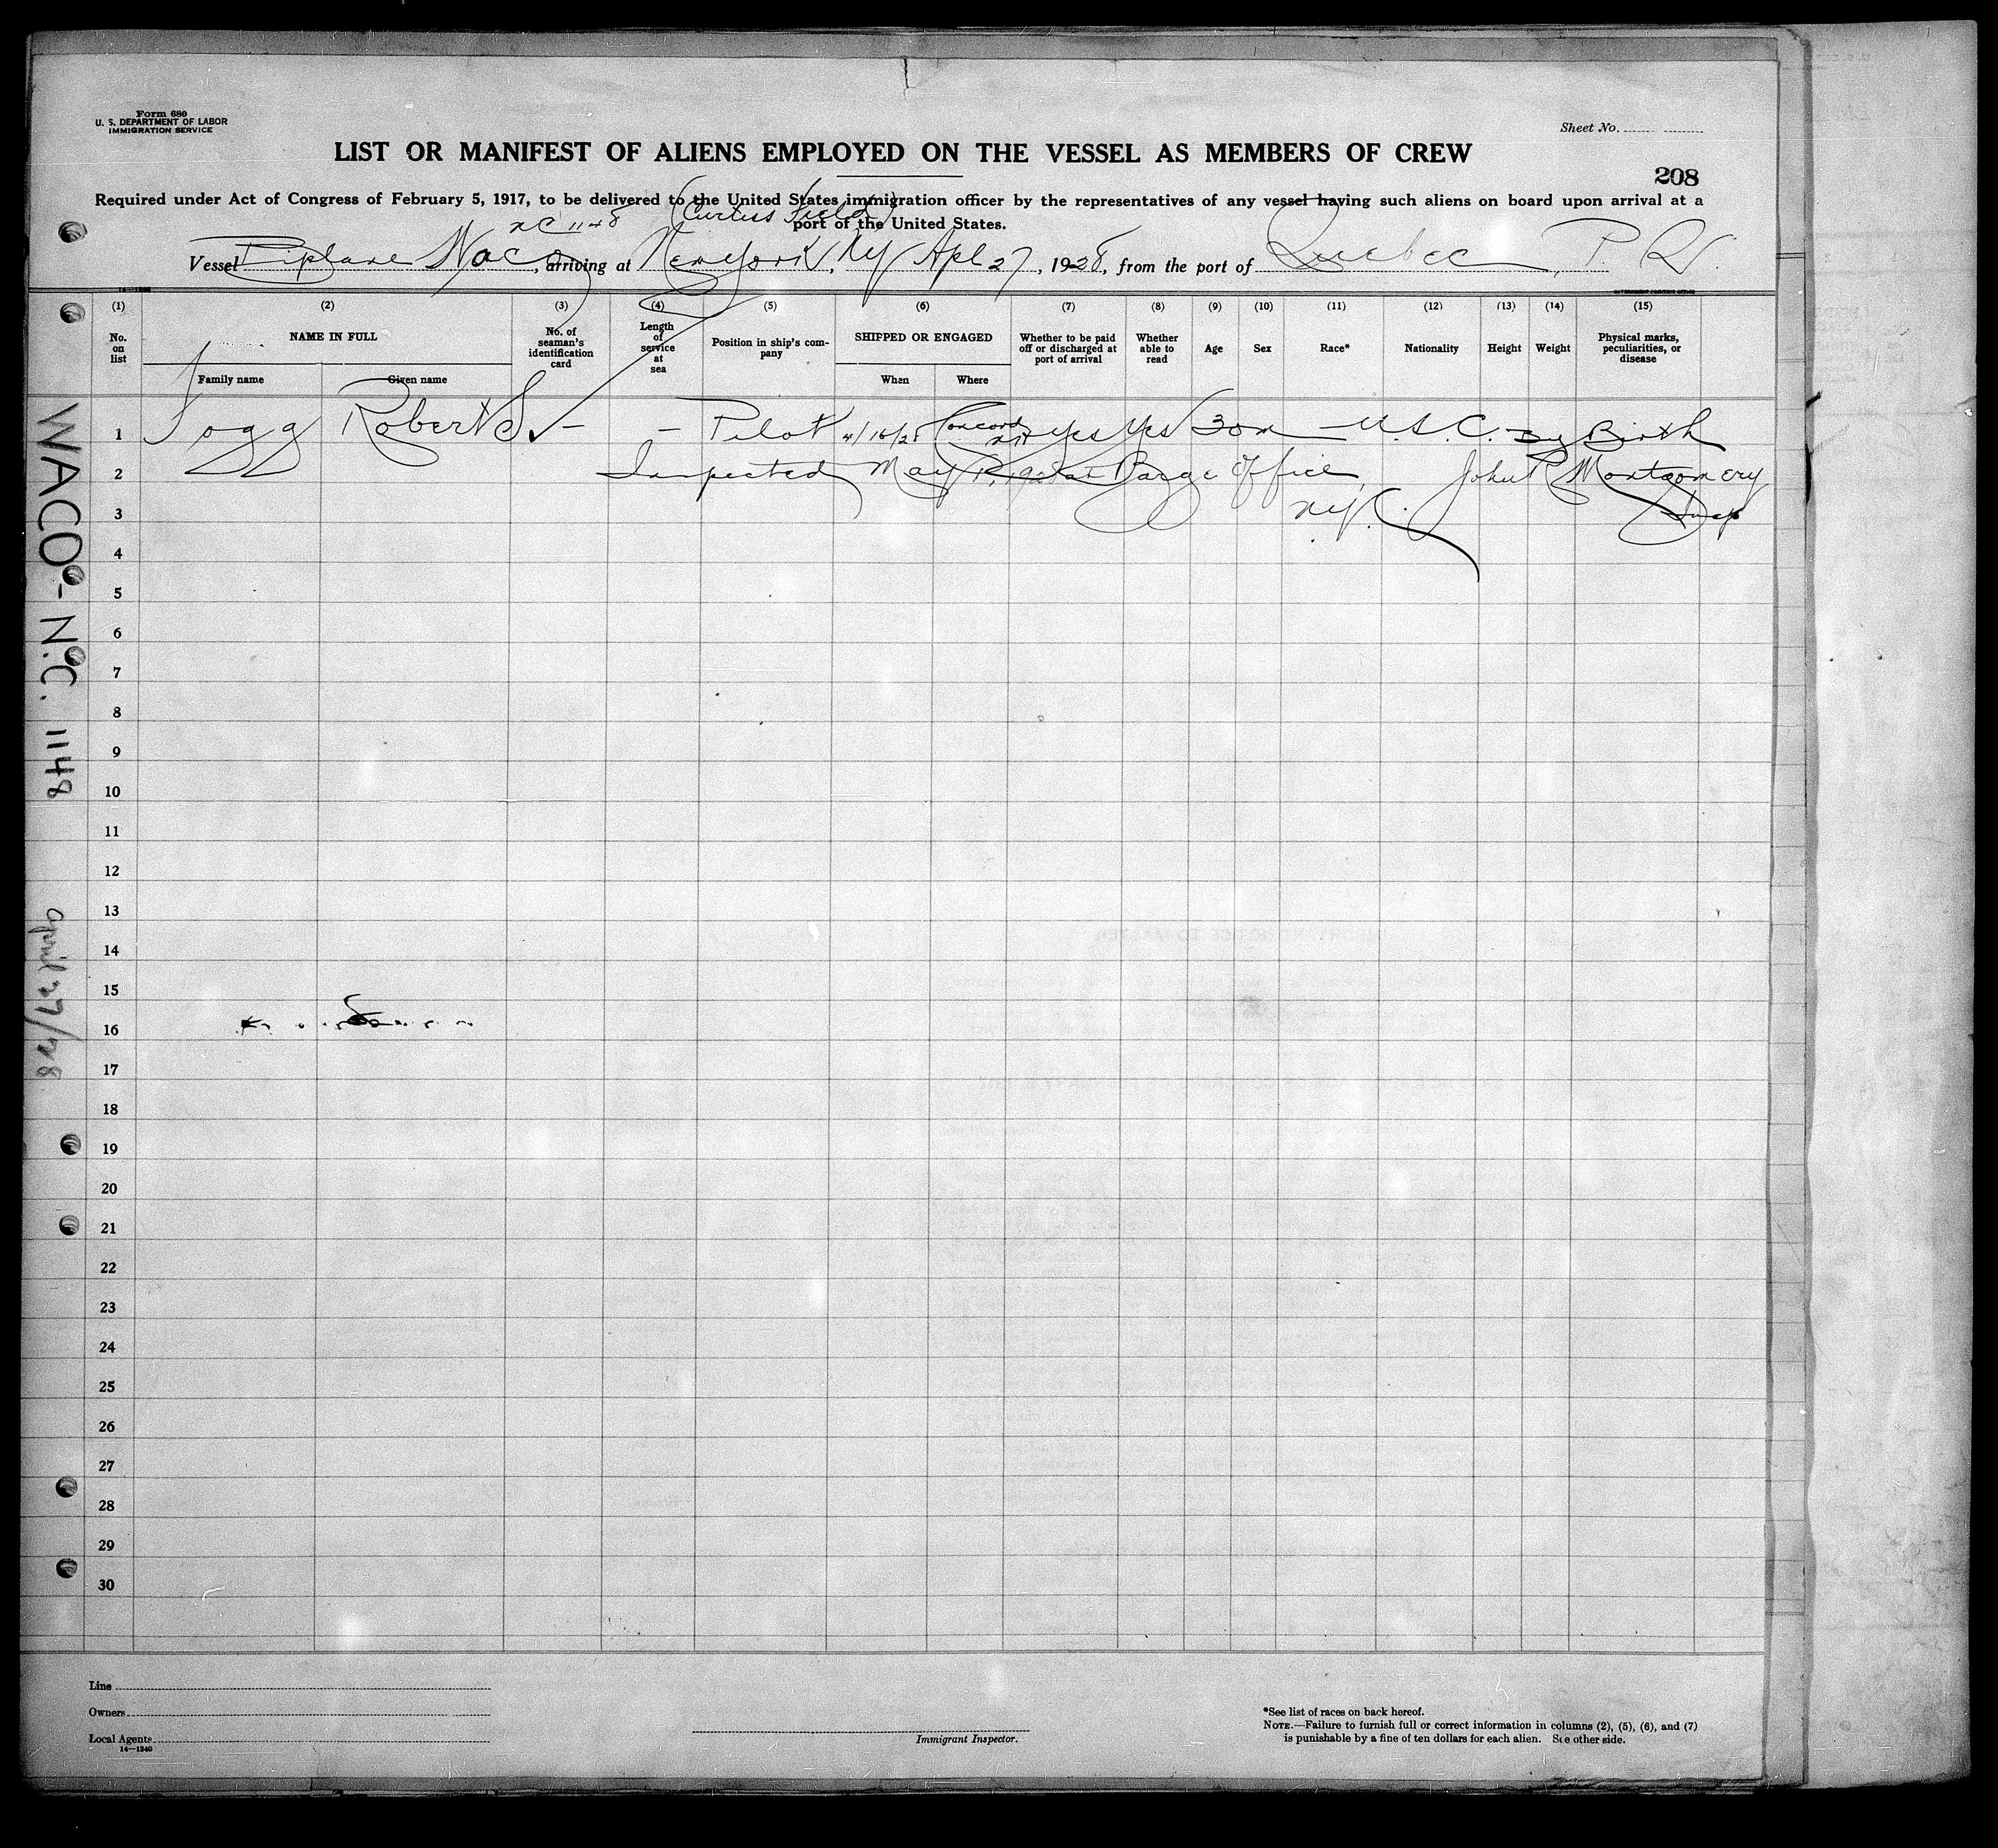 Form 680
U. S. DEPARTMENT OF LABOR
IMMIGRATION SERVICE
Sheet No.
LIST OR MANIFEST OF ALIENS EMPLOYED ON THE VESSEL AS MEMBERS OF CREW
208
Required under Act of Congress of February 5, 1917, to be delivered to the United States immigration officer by the representatives of any vessel having such aliens on board upon arrival at a
port of the United States.
NC 1148 (Curtiss Field)
Vessel Biplane Waco, arriving at New York, NY Apl 27, 1928, from the port of Quebec, P. Q.
(1) (2) (3) (4) (5) (6) (7) (8) (9) (10) (11) (12) (13) (14) (15)
No. on list
NAME IN FULL
Family name Given name
No. of seaman's identification card
Length of service at sea
Position in ship's company
SHIPPED OR ENGAGED
When Where
Whether to be paid off or discharged at port of arrival
Whether able to read
Age
Sex
Race*
Nationality
Height
Weight
Physical marks, peculiarities, or disease
1 Fogg Robert S ✓ – – Pilot 4/16/28 Concord NH Yes Yes 30 m – U.S.C. By Birth
2 Inspected May Barge Office, John R Montgomery
3 N.Y.C. Insp
4
5
6
7
8
9
10
11
12
13
14
15
16
17
18
19
20
21
22
23
24
25
26
27
28
29
30
WACO - N.C. 1148
April 27/28
Line
Owners
Local Agents
14—1240
Immigrant Inspector.
*See list of races on back hereof.
NOTE.—Failure to furnish full or correct information in columns (2), (5), (6), and (7)
is punishable by a fine of ten dollars for each alien. See other side.